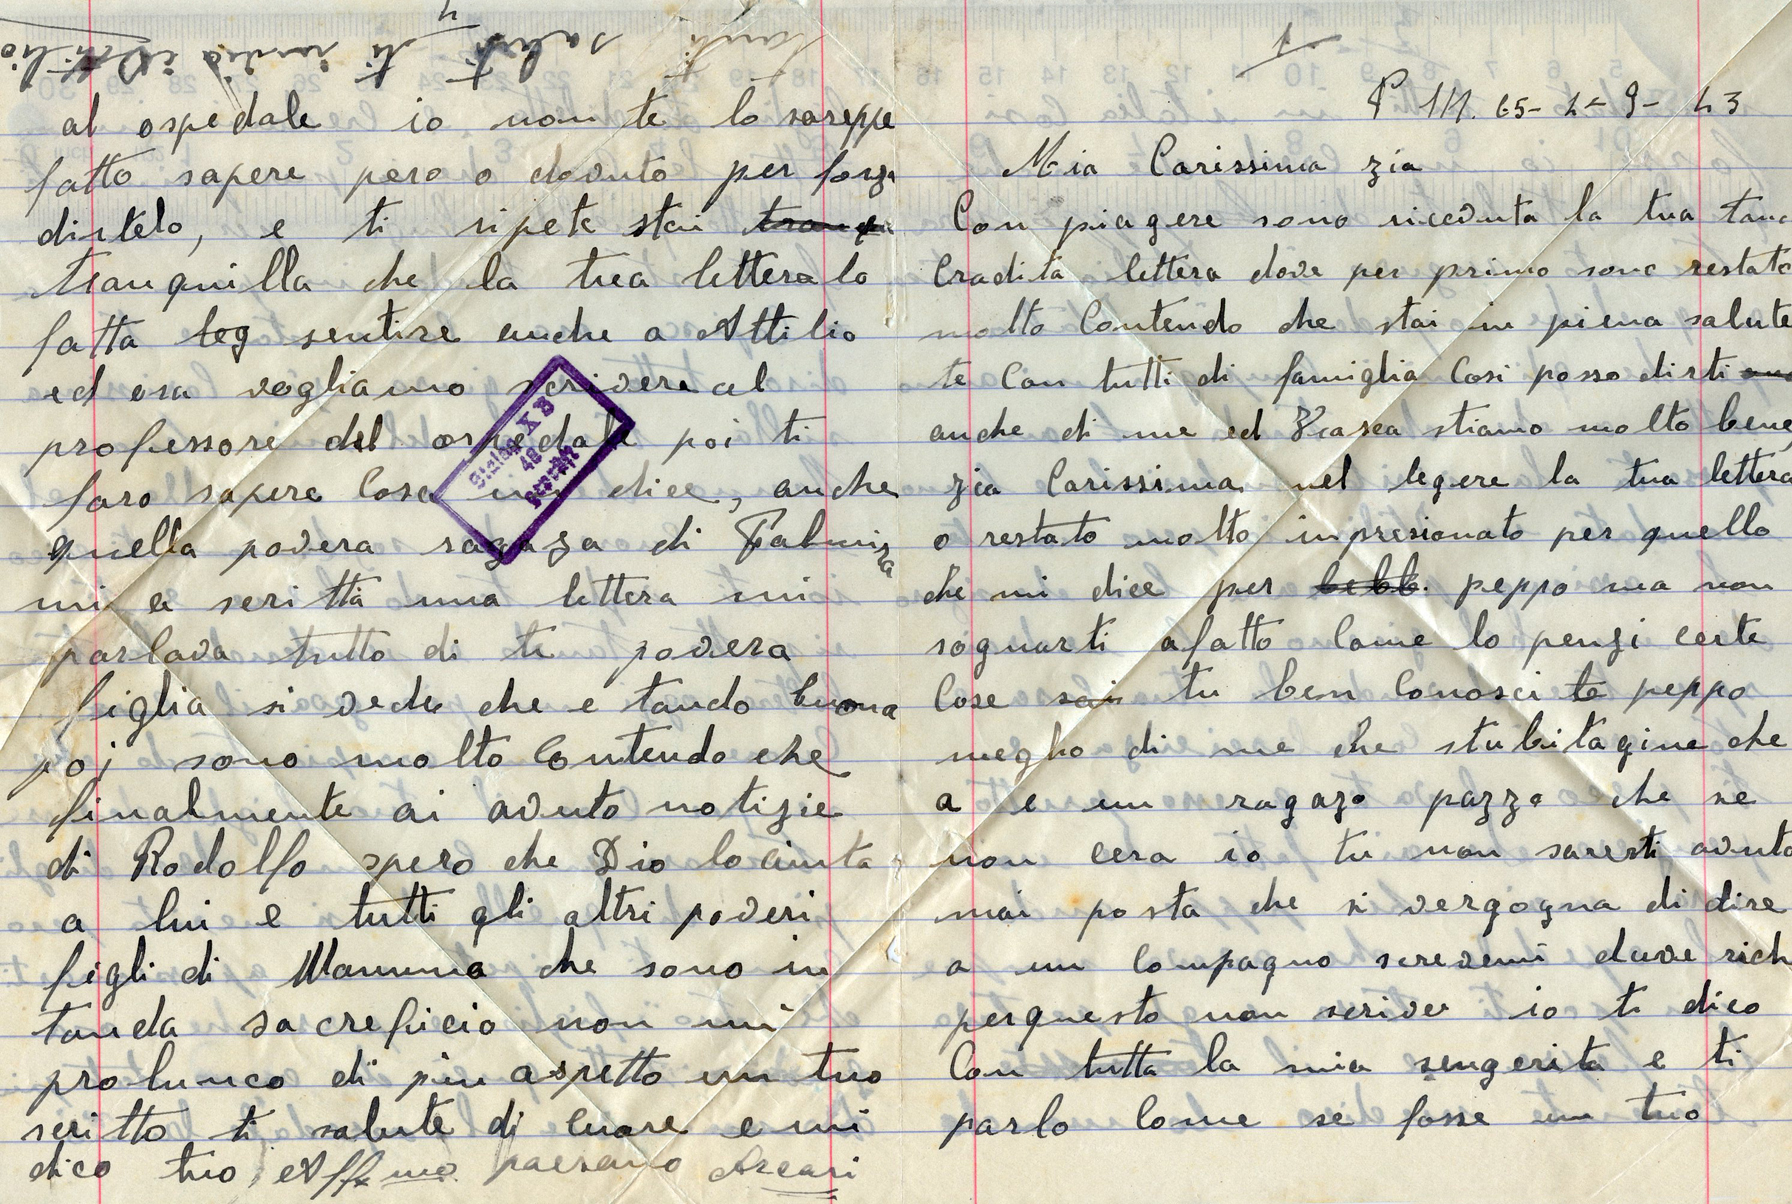 1
P. M. 65- 2- 9- 43
Mia Carissima zia
Con piagere sono riceduta la tua tanc
Cradita lettera dove per primo sono restato
molto Contendo che stai in piena salute
te Con tutti di famiglia Cosi posso dirti
anche di me ed stiamo molto bene
zia Carissima nel legere la tua lettera
o restato molto inpresionato per quello
che mi dice per bebb. peppo ma non
sognarti afatto Come lo penzi certe
Cose sai tu ben Conosci te peppo
meglio di me che stubitagine che
a e un ragazo pazzo che se
non cera io tu non saresti avuto
mai posta che si vergogna di dire
a un Compagno screvemi deve rich
perquesto non scrive io ti dico
Con tutta la mia sengerita e ti
parlo Come se fosse un tuo
4
al ospedale io non te lo sareppe
fatto sapere pero o dovuto per forza
dirtelo, e ti ripete stai tranqu
tranquilla che la tua lettera lo
fatta leg sentire anche a Attilio
ed ora vogliamo scrivere al
professore del ospedale poi ti
faro sapere Cosa mi dice, anche
quella povera ragaza di
mi a scritta una lettera mi
parlava tutto di te povera
figlia si vede che e tando buona
poi sono molto Contendo che
finalmente ai avuto notizie
di Rodolfo spero che Dio lo aiuta
a lui e tutti gli altri poveri
figli di Mamma che sono in
tanda sacreficio non mi
prolunco di piu aspetto un tuo
scritto ti salute di Cuore e mi
dico tuo Affmo paesano Arcari
tanti saluti ti invia Attilio
Stalag X B